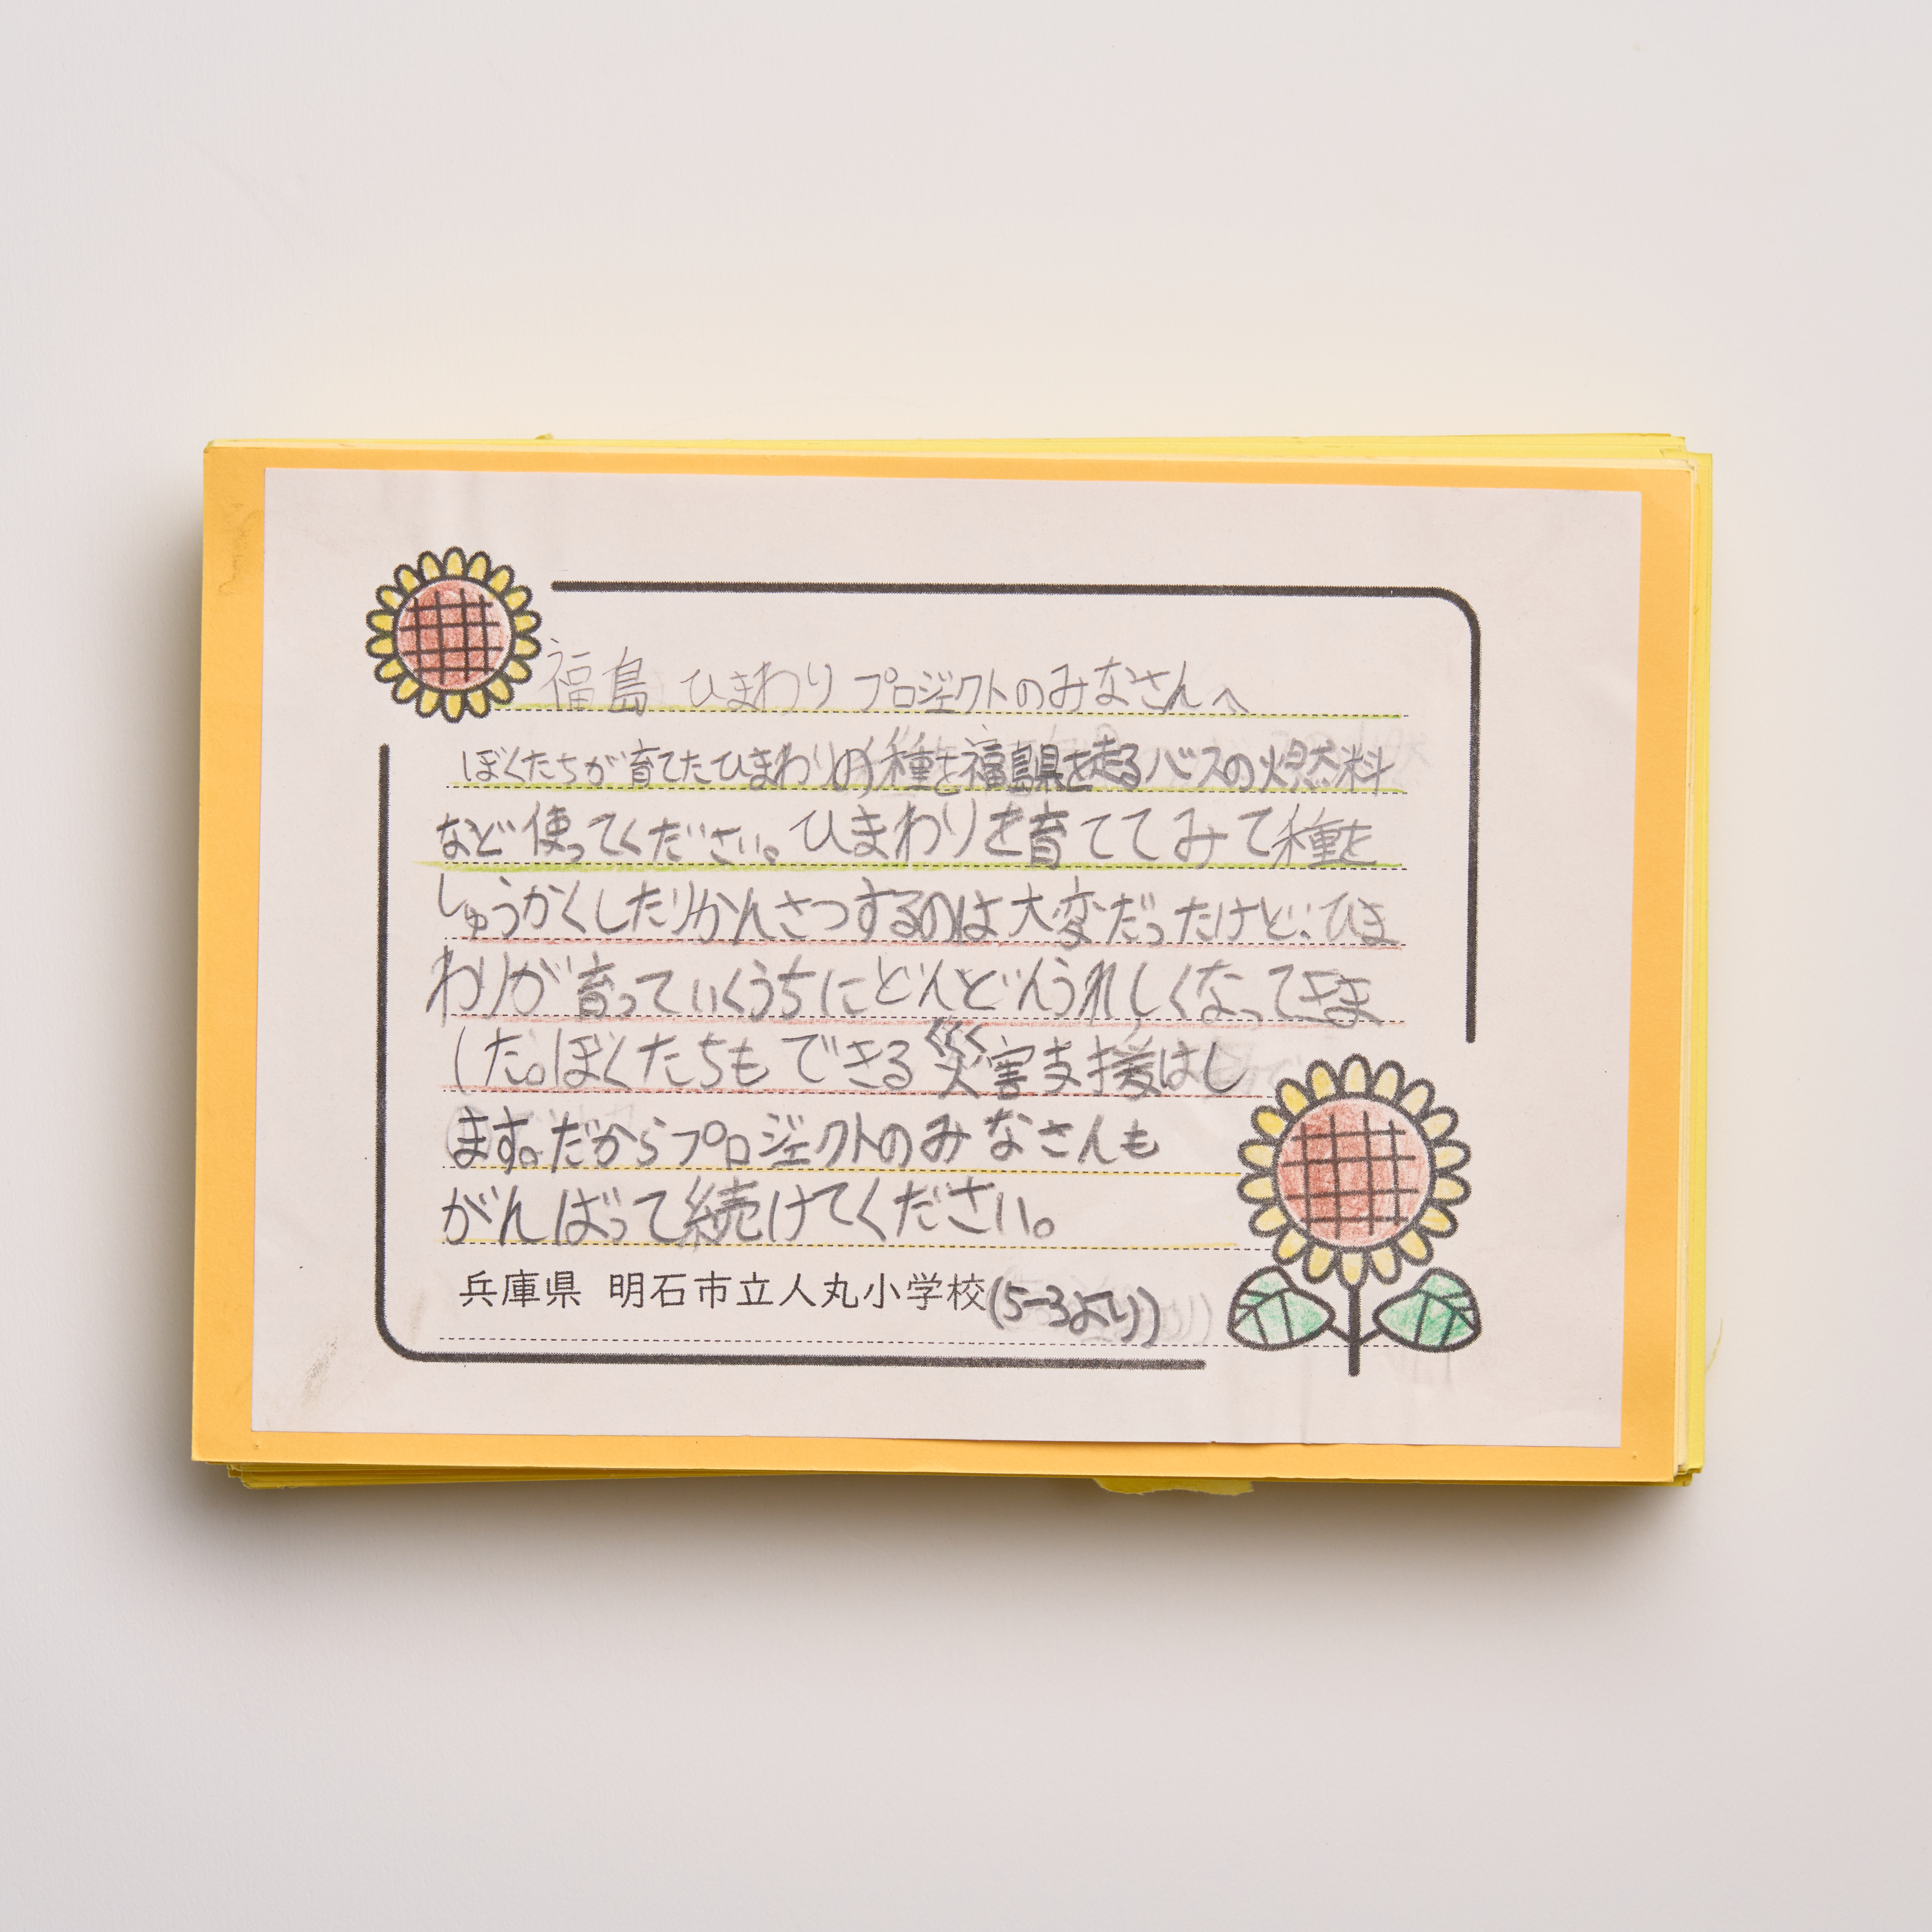 福島 ひまわり プロジェクトのみなさんへ
ぼくたちが育てたひまわりの種を福島県を走るバスの燃料
など使ってください。ひまわりを育ててみて種を
しゅうかくしたりかんさつするのは大変だったけど、ひま
わりが育っていくうちにどんどんうれしくなってきま
した。ぼくたちもできる災害支援はし
ます。だからプロジェクトのみなさんも
がんばって続けてください。
兵庫県 明石市立人丸小学校(5-3より)